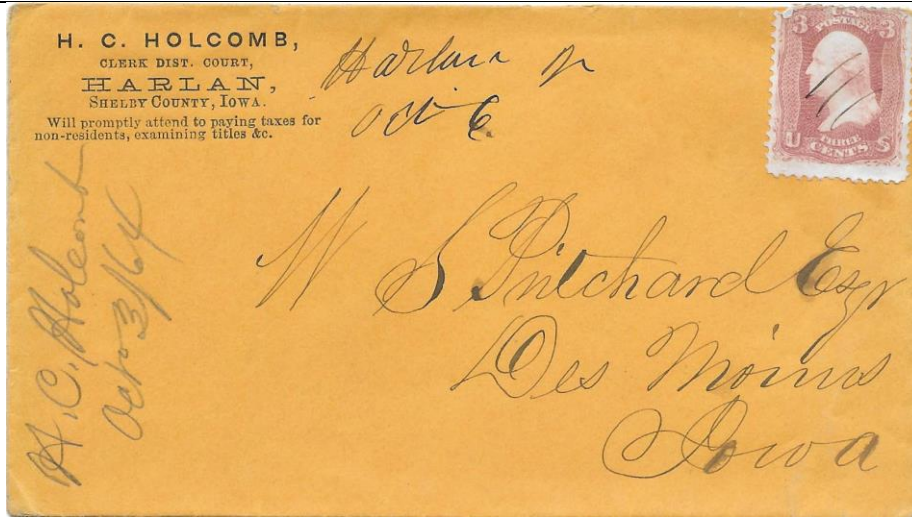 H. C. HOLCOMB,
CLERK DIST. COURT,
HARLAN,
SHELBY COUNTY, IOWA.
Will promptly attend to paying taxes for
non-residents, examining titles &c.
Harlan Ia
Oct 6
3 U.S. 3
POSTAGE
U THREE S
CENTS
W S Pritchard Esqr
Des Moines
Iowa
H. C. Holcomb
Oct 3/64